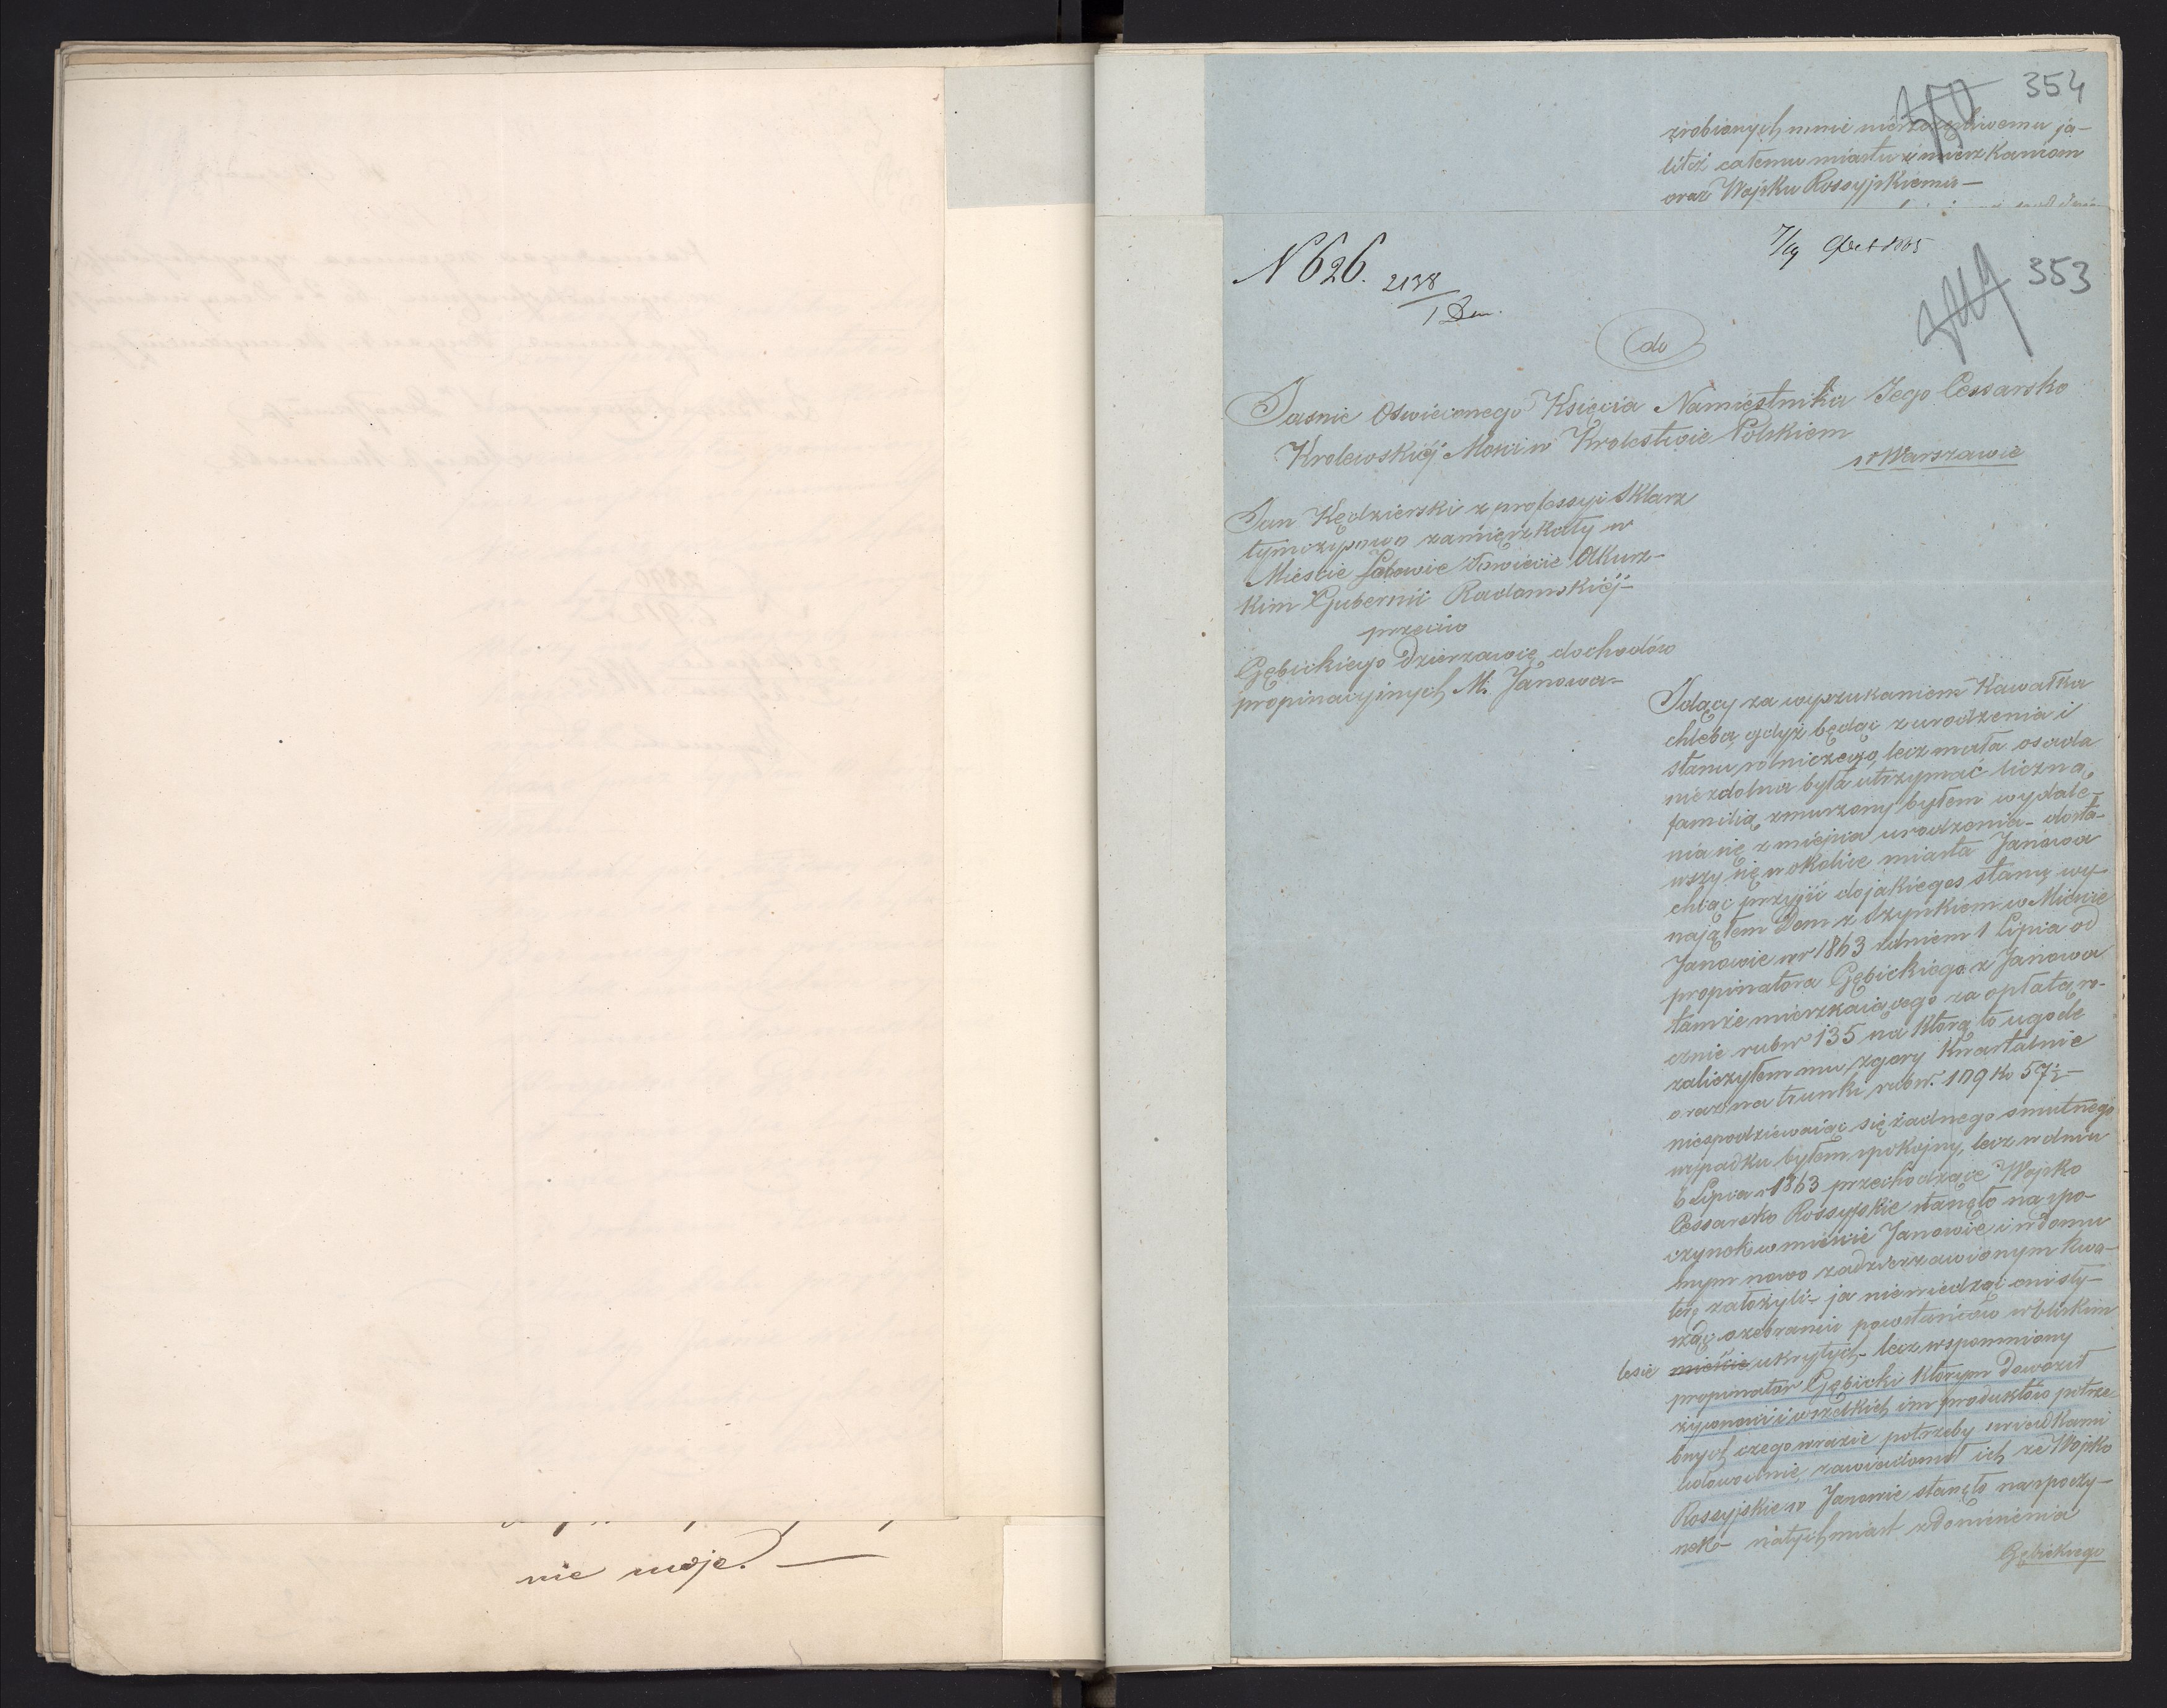 nie moje. —
354
zrobionych mnie nieszczęśliwemu ja-
litéż całemu miastu i mieszkańcom
oraz Wojsku Rossyjskiemu —
N 626. 2138
7/19 Oct 1865
353
do
Jaśnie Oświeconego Księcia Namiestnika Jego Cessarsko
Krolewskiéj Mości w Krolestwie Polskiem
w Warszawie
Jan Kędzierski z professyi Sklarz
tymczasowo zamieszkały w
Mieście Powiecie Olkusz-
kim Gubernii Radomskiéj
przeciw
Gębickiego Dzierzawię dochodów
propinacyjnych M. Janowa-
Idący za wyszukaniem Kawałka
chleba, gdyż będąc z urodzenia i
stanu rolniczego, lecz mała osada
niezdolna była utrzymać liczną
familią, zmuszony byłem wydale-
nia się z miejsca urodzenia - dosta-
wszy się w okolice miasta Janowa
chcąc przyjść do jakiegos stanu wy-
nająłem Dom z Szynkiem w Mieście
Janowie w r 1863 z dniem 1 Lipca od
propinatora Gębickiego z Janowa
tamże mieszkaiącego za opłatą ro-
cznie rubsr 135 na którą to ugodę
zaliczyłem mu z gory Kwartalnie
oraz na trunki rubsr. 109 ko 57½ -
niespodziewaiąc się żadnego smutnego
wypadku byłem spokojny, lecz w dniu
6 Lipca r 1863 przechodzące Wojsko
Cessarsko Rossyjskie stanęło na spo-
czynek w mieście Janowie i w domu
mym nowo zadzierzawionym kwa-
terę założyli - ja nie wiedząc ani sły-
sząc o zebraniu powstańców w bliskim
lesie mieście ukrytych - lecz wspomniony
propinator Gębicki który im dowoził
żywności i wszelkich im produktów potrze
bnych czego w razie potrzeby swiadkami
udowodnię zawiadomił ich że Wojsko
Rossyjskie w Janowie stanęło na spoczy-
nek - natychmiast z doniesienia
Gębickiego